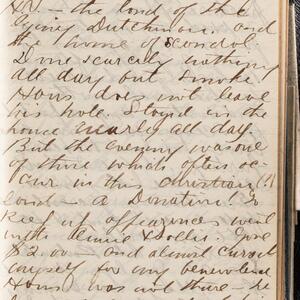 — the land of the
Giney Dutchman. and
the home of scandal.
Done scarcely nothing
all day but smoke
Hons does not leave
his hole. Stayed in the
house nearly all day.
But the evening was one
of those which often oc-
cur in this christian (?)
land — a Donation! To
keep up appearances went
with Annie & Dollie. Gave
$2.00 — and almost cursed
myself for my benevolence
Hons was not there — he